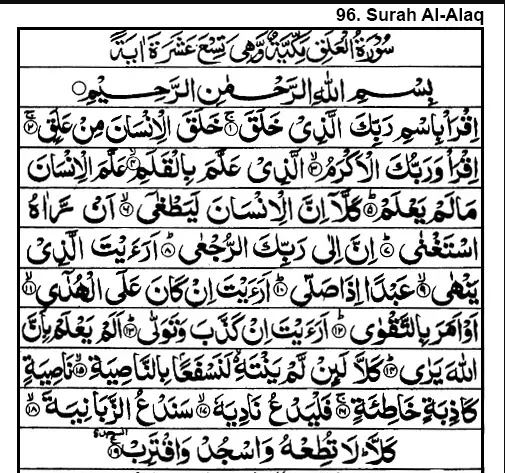 96. Surah Al-Alaq
سُوْرَةُ الْعَلَقِ مَكِّيَّةٌ وَّهِيَ تِسْعَ عَشْرَةَ اٰيَةً
بِسْمِ اللّٰهِ الرَّحْمٰنِ الرَّحِيْمِ
اِقْرَاْ بِاسْمِ رَبِّكَ الَّذِيْ خَلَقَ ۚ۱ خَلَقَ الْاِنْسَانَ مِنْ عَلَقٍ ۚ۲
اِقْرَاْ وَرَبُّكَ الْاَكْرَمُ ۙ۳ الَّذِيْ عَلَّمَ بِالْقَلَمِ ۙ۴ عَلَّمَ الْاِنْسَانَ
مَا لَمْ يَعْلَمْ ؕ۵ كَلَّاۤ اِنَّ الْاِنْسَانَ لَيَطْغٰٓى ۙ۶ اَنْ رَّاٰهُ
اسْتَغْنٰى ؕ۷ اِنَّ اِلٰى رَبِّكَ الرُّجْعٰى ؕ۸ اَرَءَيْتَ الَّذِيْ
يَنْهٰى ۙ۹ عَبْدًا اِذَا صَلّٰى ؕ۱۰ اَرَءَيْتَ اِنْ كَانَ عَلَى الْهُدٰٓى ۙ۱۱
اَوْ اَمَرَ بِالتَّقْوٰى ؕ۱۲ اَرَءَيْتَ اِنْ كَذَّبَ وَتَوَلّٰى ؕ۱۳ اَلَمْ يَعْلَمْ بِاَنَّ
اللّٰهَ يَرٰى ؕ۱۴ كَلَّا لَئِنْ لَّمْ يَنْتَهِ ۙ لَنَسْفَعًا بِالنَّاصِيَةِ ۙ۱۵ نَاصِيَةٍ
كَاذِبَةٍ خَاطِئَةٍ ۚ۱۶ فَلْيَدْعُ نَادِيَهٗ ۙ۱۷ سَنَدْعُ الزَّبَانِيَةَ ۙ۱۸
كَلَّا ؕ لَا تُطِعْهُ وَاسْجُدْ وَاقْتَرِبْ ۩۱۹